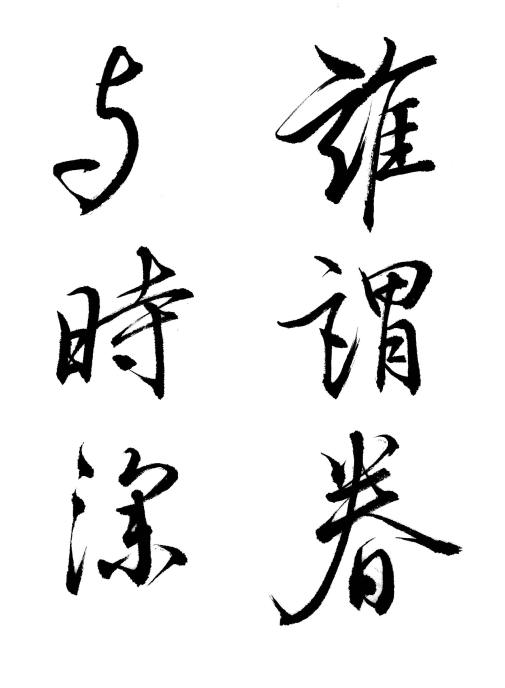 誰謂眷
与時深